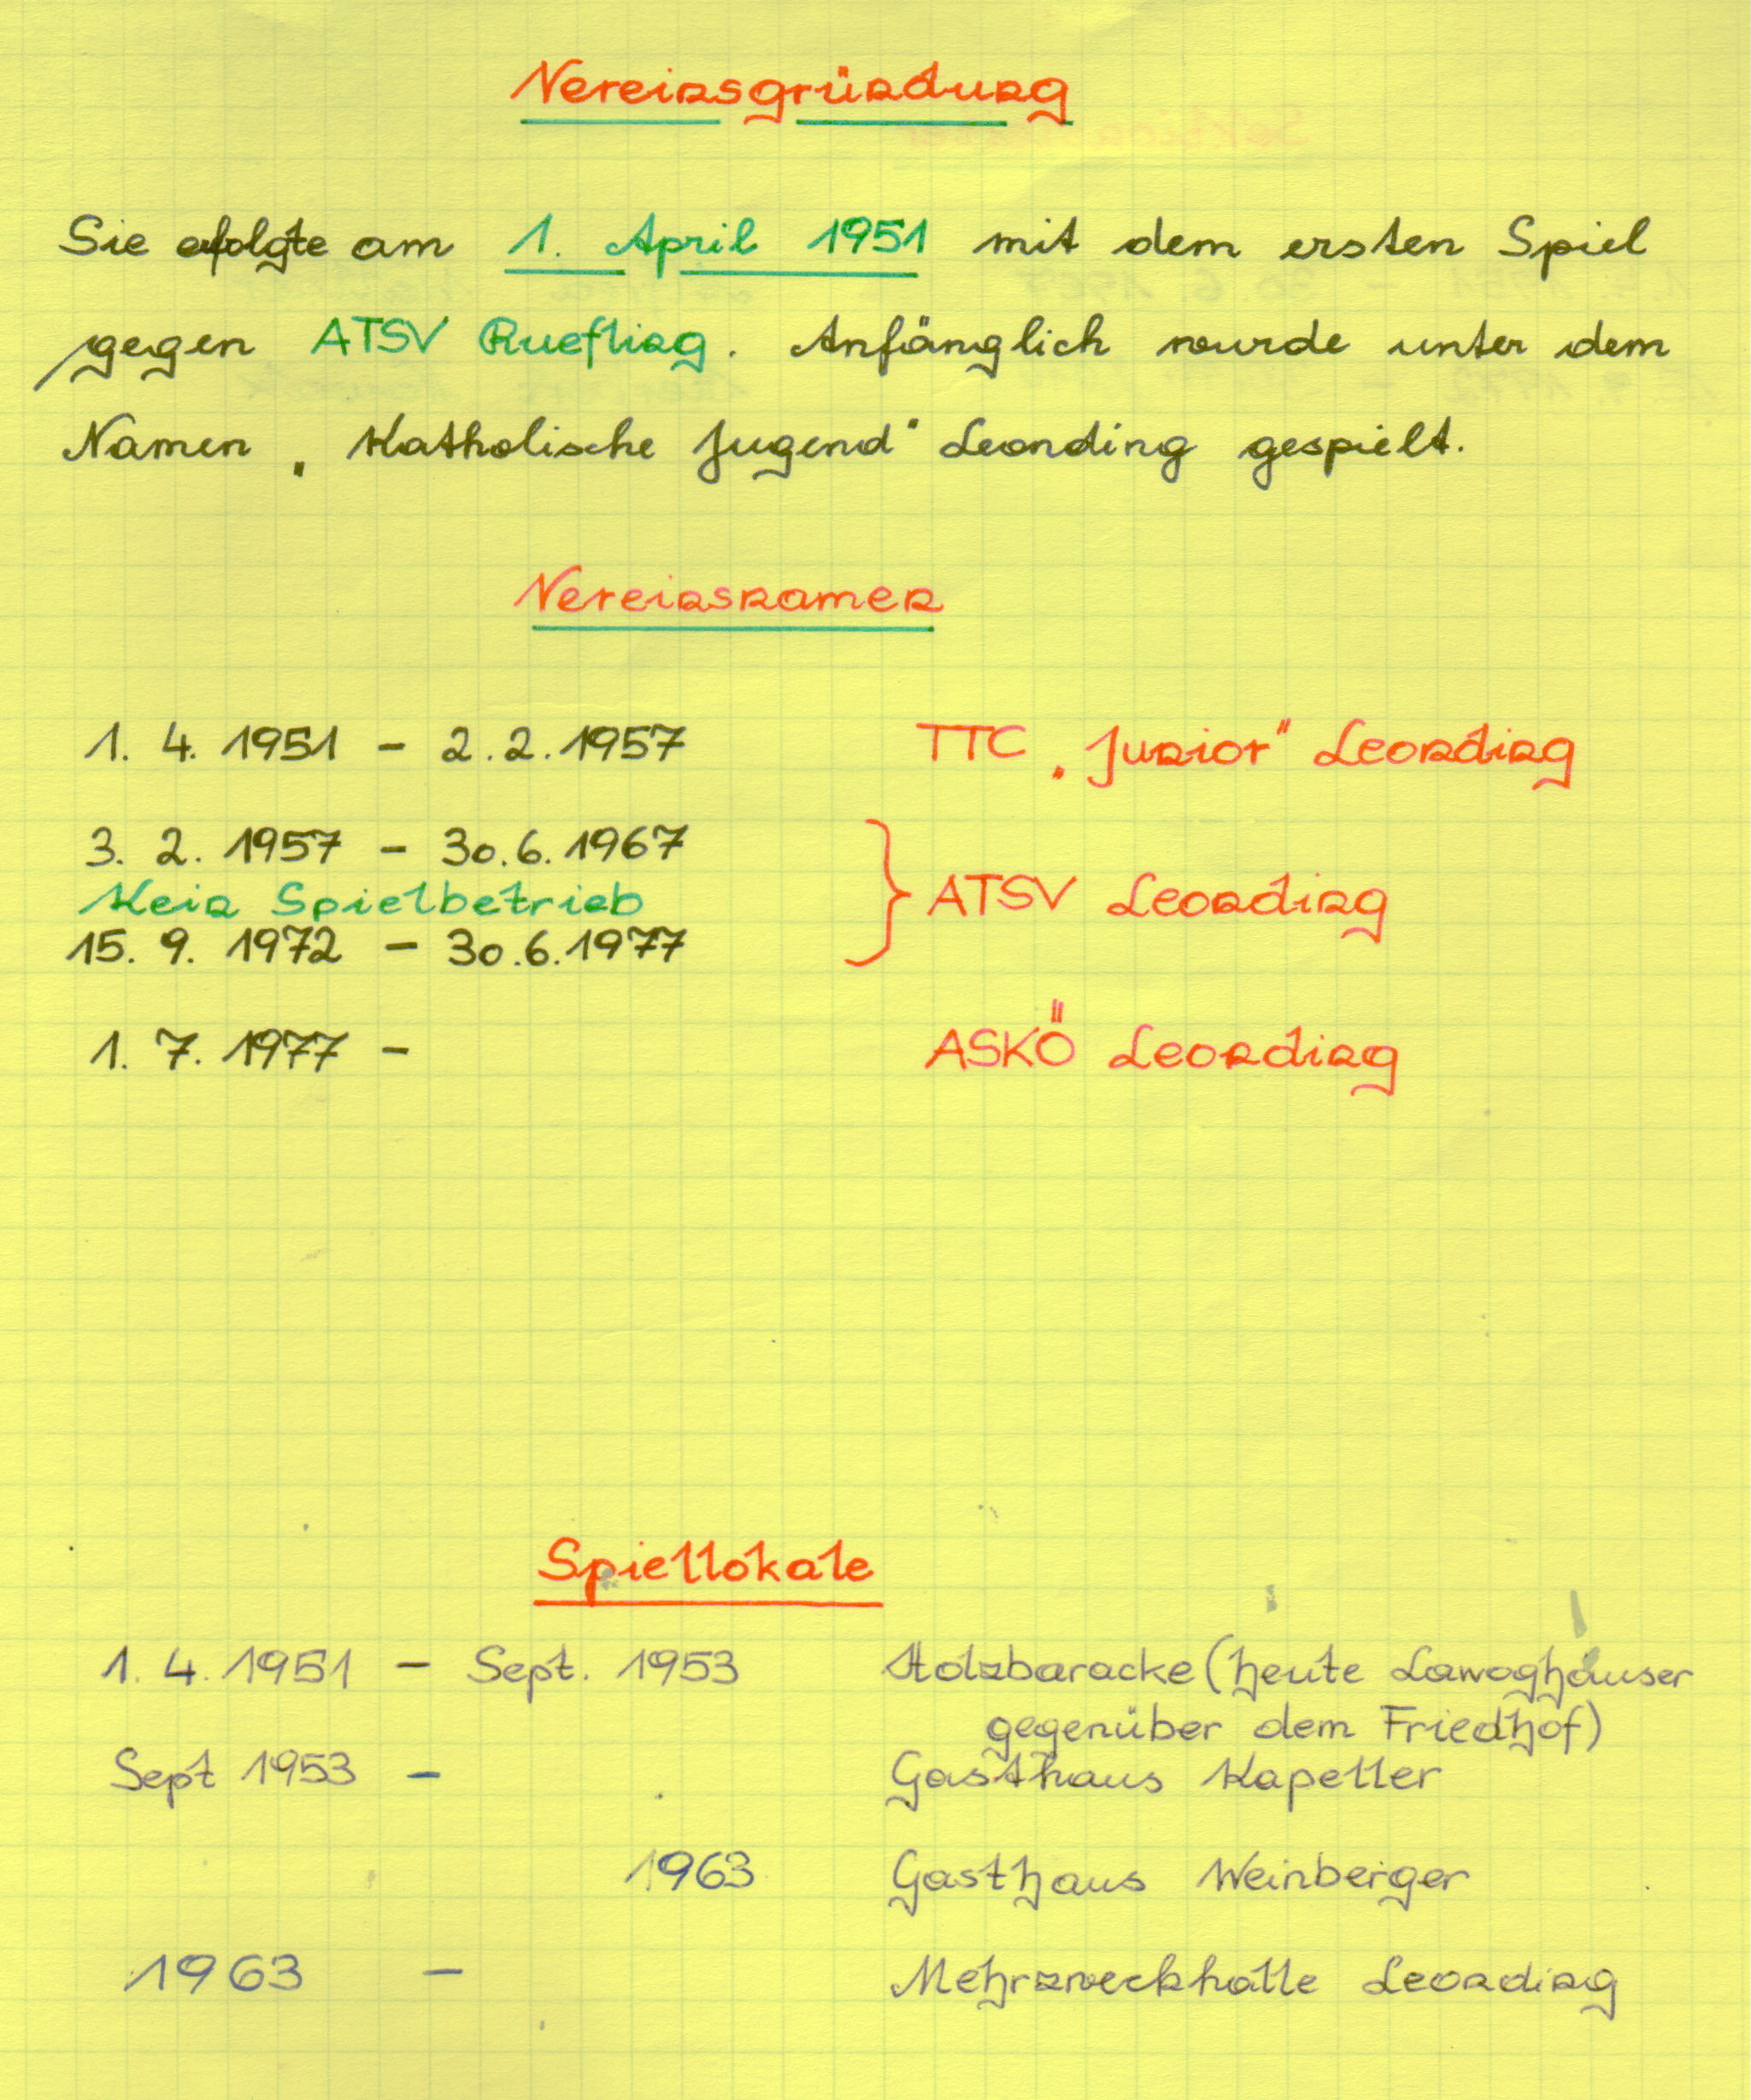 Vereinsgründung
Sie erfolgte am 1. April 1951 mit dem ersten Spiel
gegen ATSV Ruefling. Anfänglich wurde unter dem
Namen „Katholische Jugend" Leonding gespielt.
Vereinsnamen
1. 4. 1951 - 2. 2. 1957 TTC „Junior" Leonding
3. 2. 1957 - 30. 6. 1967
Kein Spielbetrieb } ATSV Leonding
15. 9. 1972 - 30. 6. 1977
1. 7. 1977 - ASKÖ Leonding
Spiellokale
1. 4. 1951 - Sept. 1953 Holzbaracke (heute Lawoghäuser
gegenüber dem Friedhof)
Sept 1953 - Gasthaus Kapeller
1963 Gasthaus Weinberger
1963 - Mehrzweckhalle Leonding